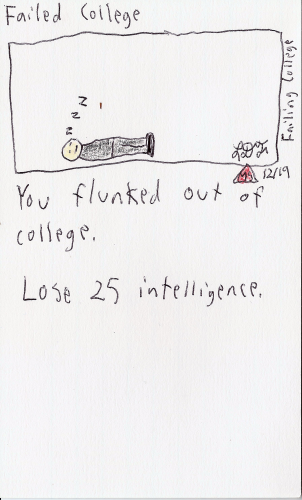 Failed College
Failing College
z
z
z
12/19
You flunked out of
college.
Lose 25 intelligence.